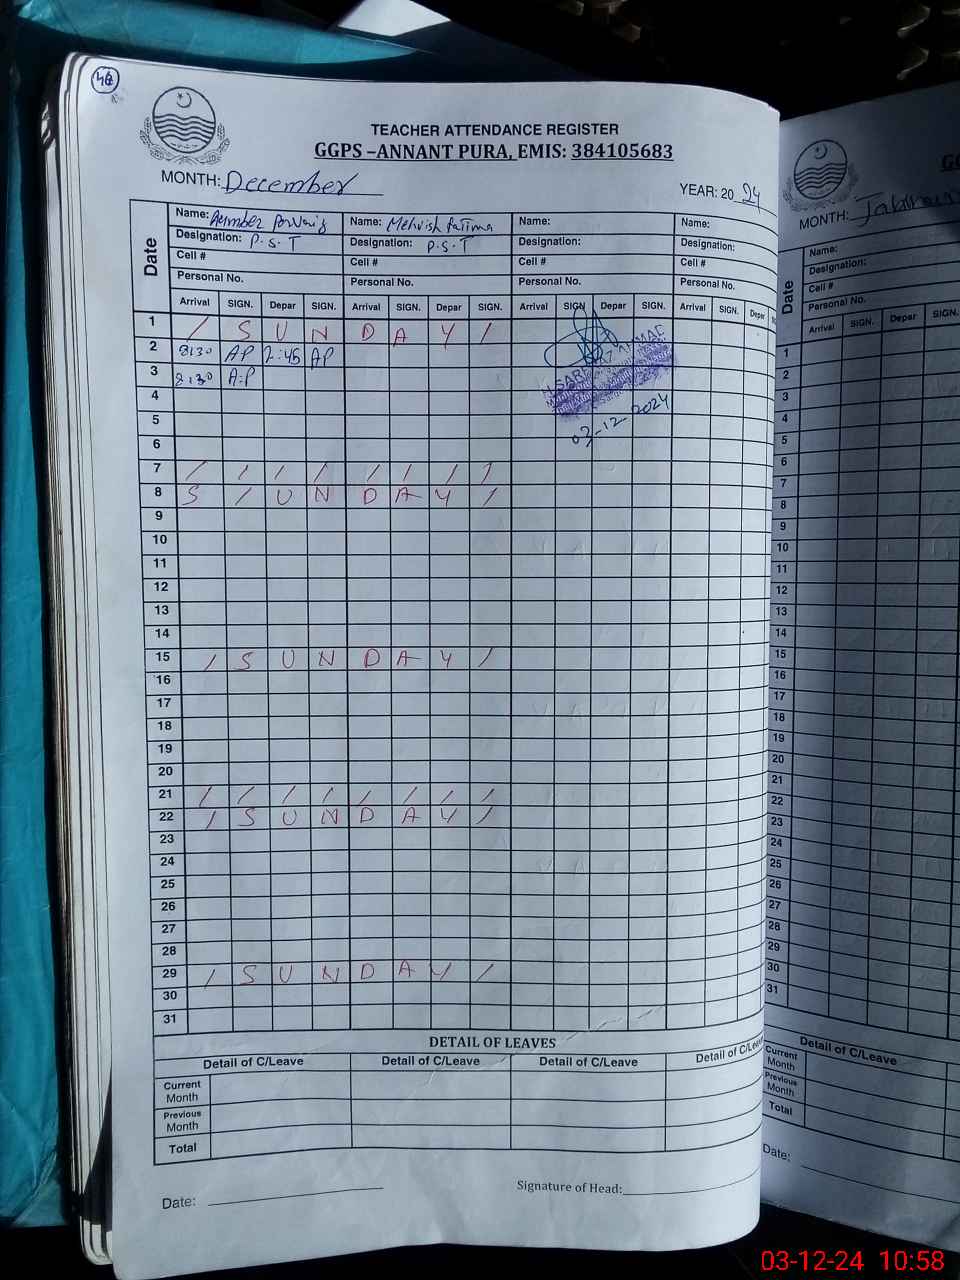 TEACHER ATTENDANCE REGISTER
GGPS –ANNANT PURA, EMIS: 384105683
MONTH: December
YEAR: 20 24
Date
Name: Name: Mehvish Fatima Name: Name:
Designation: P.S.T Designation: P.S.T Designation: Designation:
Cell # Cell # Cell # Cell #
Personal No. Personal No. Personal No. Personal No.
Arrival SIGN. Depar SIGN. Arrival SIGN. Depar SIGN. Arrival SIGN. Depar SIGN. Arrival SIGN. Depar
1 / S U N D A Y /
2 8:30 AP 2:45 AP
3 8:30 A.P
02-12-2024
4
5
6
7 / / / / / / / /
8 S / U N D A Y /
9
10
11
12
13
14
15 / S U N D A Y /
16
17
18
19
20
21 / / / / / / / /
22 / S U N D A Y /
23
24
25
26
27
28
29 / S U N D A Y /
30
31
DETAIL OF LEAVES
Detail of C/Leave Detail of C/Leave Detail of C/Leave Detail of C/Leave
Current Month
Previous Month
Total
Date:
Signature of Head:
MONTH:
Date
Name:
Designation:
Cell #
Personal No.
Arrival SIGN. Depar SIGN.
1
2
3
4
5
6
7
8
9
10
11
12
13
14
15
16
17
18
19
20
21
22
23
24
25
26
27
28
29
30
31
Detail of C/Leave
Current Month
Previous Month
Total
Date:
03-12-24 10:58